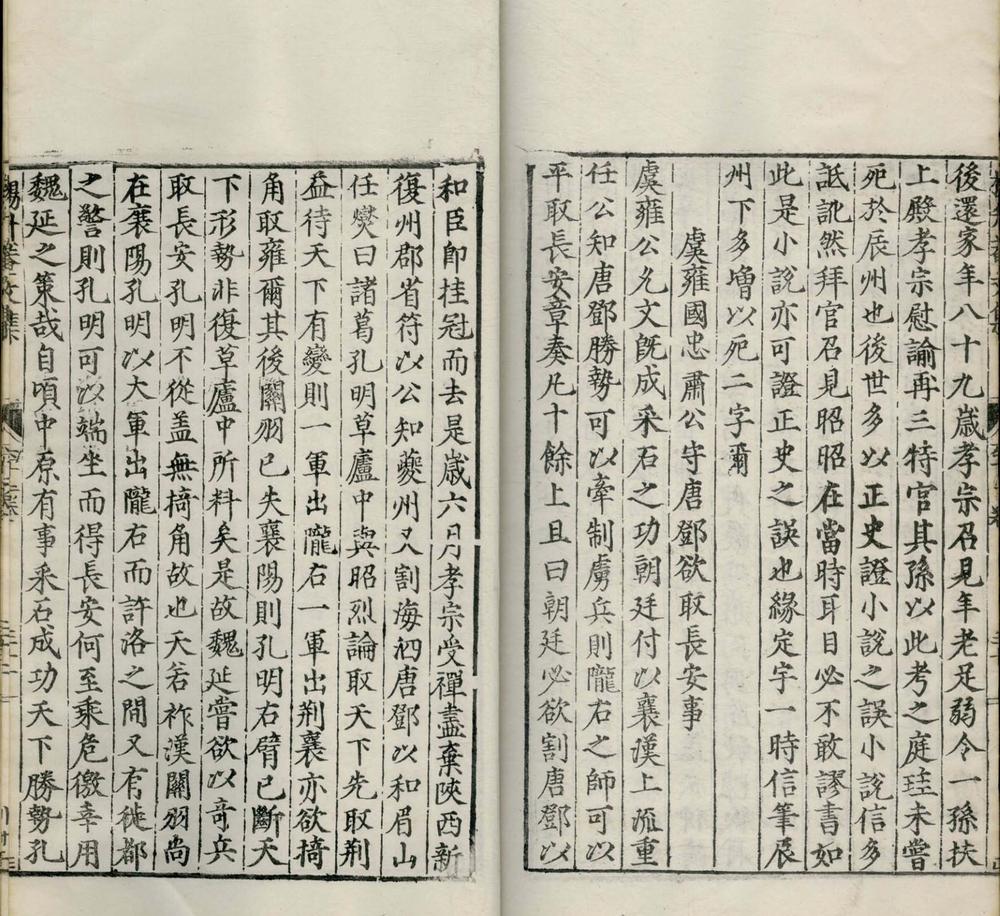 後還家年八十九歲孝宗召見年老足弱令一孫扶
上殿孝宗慰諭再三特官其孫以此考之庭珪未嘗
死於辰州也後世多以正史證小說之誤小說信多
詆訛然拜官召見昭昭在當時耳目必不敢謬書如
此是小說亦可證正史之誤也緣定宇一時信筆辰
州下多增以死二字爾
虞雍國忠肅公守唐鄧欲取長安事
虞雍公允文既成采石之功朝廷付以襄漢上流重
任公知唐鄧勝勢可以牽制虜兵則隴右之師可以
平取長安章奏凡十餘上且曰朝廷必欲割唐鄧以
和臣即挂冠而去是歲六月孝宗受禪盡棄陝西新
復州郡省符以公知夔州又割海泗唐鄧以和眉山
任燮曰諸葛孔明草廬中與昭烈論取天下先取荆
益待天下有變則一軍出隴右一軍出荆襄亦欲掎
角取雍爾其後關羽已失襄陽則孔明右臂已斷天
下形勢非復草廬中所料矣是故魏延嘗欲以奇兵
取長安孔明不從盖無掎角故也天若祚漢關羽尚
在襄陽孔明以大軍出隴右而許洛之間又有徙都
之警則孔明可以端坐而得長安何至乘危徼幸用
魏延之策哉自頃中原有事采石成功天下勝勢孔